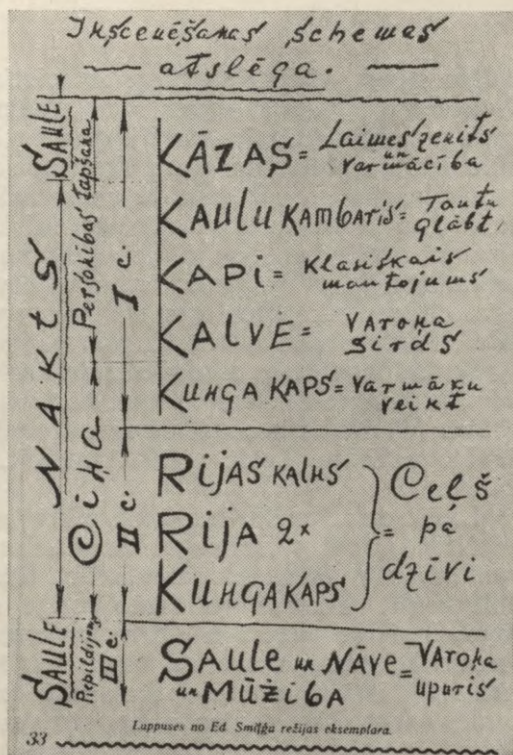 Inscenēšanas schemas
atslēga.
SAULE
NAKtS
SAULE
Personības tapšana
CīņA
Piepildījums
I c.
II c.
III c.
KĀZAS = Laimes zenits
un varmācība
KAULU KAMBARIS = Tautu
glābt
KAPi = Klasiskais
mantojums
KALVE = VAROŅA
SirdS
KUNGA KAPS = Varmāku
veikt
RiJAS KALNS
RiJA 2x
KUNGAKAPS
= Ceļš
pa
dzīvi
SAULE un NĀVE = VAROŅA
un MŪŽiBA upuris
Lappuses no Ed. Smiļģa režijas eksemplara.
33